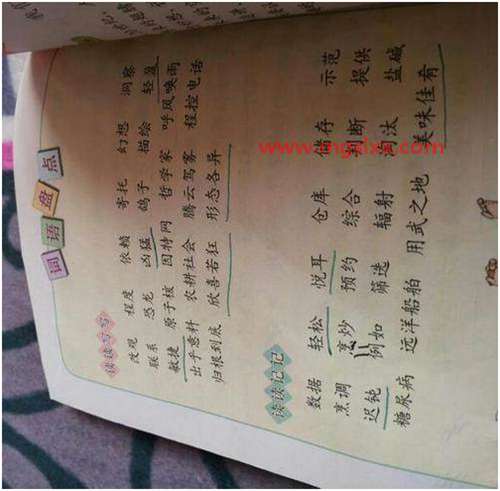 词语盘点
读读写写
改观 程度 依赖 寄托 幻想 洞察
联系 恐龙 凶猛 鸽子 描绘 轻盈
敏捷 原子核 因特网 哲学家 呼风唤雨
出乎意料 农耕社会 腾云驾雾 程控电话
归根到底 欣喜若狂 形态各异
读读记记
数据 轻松 悦耳 仓库 储存 示范
烹调 烹炒 预约 综合 判断 提供
迟钝 例如 筛选 辐射 淘汰 盐碱
糖尿病 远洋船舶 用武之地 美味佳肴